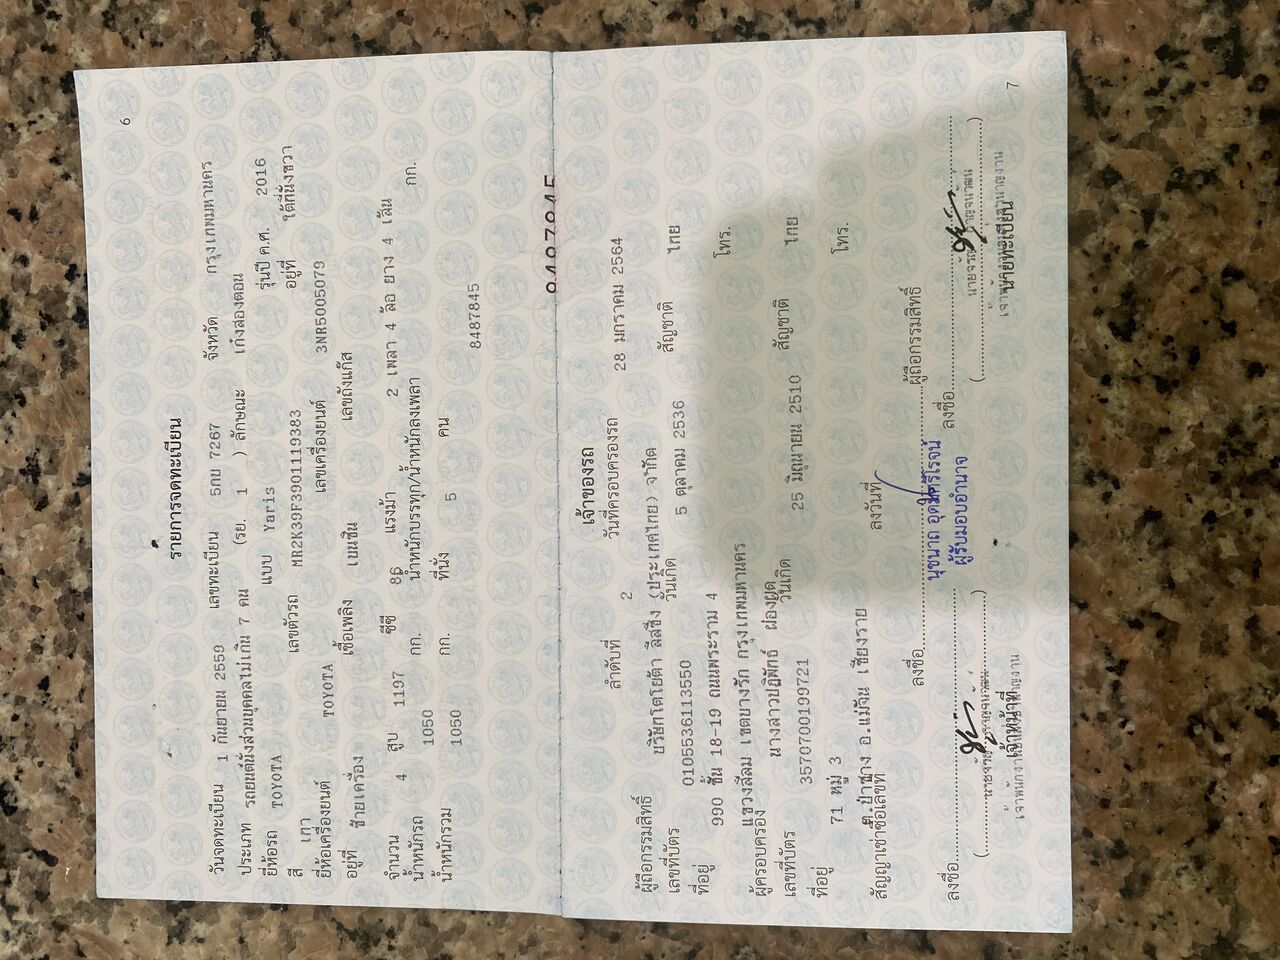 6
รายการจดทะเบียน
วันจดทะเบียน 1 กันยายน 2559 เลขทะเบียน 5กบ 7267 จังหวัด กรุงเทพมหานคร
ประเภท รถยนต์นั่งส่วนบุคคลไม่เกิน 7 คน (รย. 1 ) ลักษณะ เก๋งสองตอน
ยี่ห้อรถ TOYOTA แบบ Yaris รุ่นปี ค.ศ. 2016
สี เทา เลขตัวรถ MR2K39F3901119383 อยู่ที่ ใต้ที่นั่งขวา
ยี่ห้อเครื่องยนต์ TOYOTA เลขเครื่องยนต์ 3NR5005079
อยู่ที่ ซ้ายเครื่อง เชื้อเพลิง เบนซิน เลขถังแก๊ส
จำนวน 4 สูบ 1197 ซีซี 86 แรงม้า 2 เพลา 4 ล้อ ยาง 4 เส้น
น้ำหนักรถ 1050 กก. น้ำหนักบรรทุก/น้ำหนักลงเพลา กก.
น้ำหนักรวม 1050 กก. ที่นั่ง 5 คน
8487845
เจ้าของรถ
ลำดับที่ 2 วันที่ครอบครองรถ 28 มกราคม 2564
ผู้ถือกรรมสิทธิ์ บริษัทโตโยต้า ลีสซิ่ง (ประเทศไทย) จำกัด
เลขที่บัตร 0105536113550 วันเกิด 5 ตุลาคม 2536 สัญชาติ ไทย
ที่อยู่ 990 ชั้น 18-19 ถนนพระราม 4
แขวงสีลม เขตบางรัก กรุงเทพมหานคร โทร.
ผู้ครอบครอง นางสาวปฏิพัทธ์ ผ่องผุด
เลขที่บัตร 3570700199721 วันเกิด 25 มิถุนายน 2510 สัญชาติ ไทย
ที่อยู่ 71 หมู่ 3
ต.ป่าซาง อ.แม่จัน เชียงราย โทร.
สัญญาเช่าซื้อเลขที่ ลงวันที่
ลงชื่อ ผู้ถือกรรมสิทธิ์
นุชนาถ
ผู้รับมอบอำนาจ
ลงชื่อ ลงชื่อ
เจ้าหน้าที่ นายทะเบียน
7